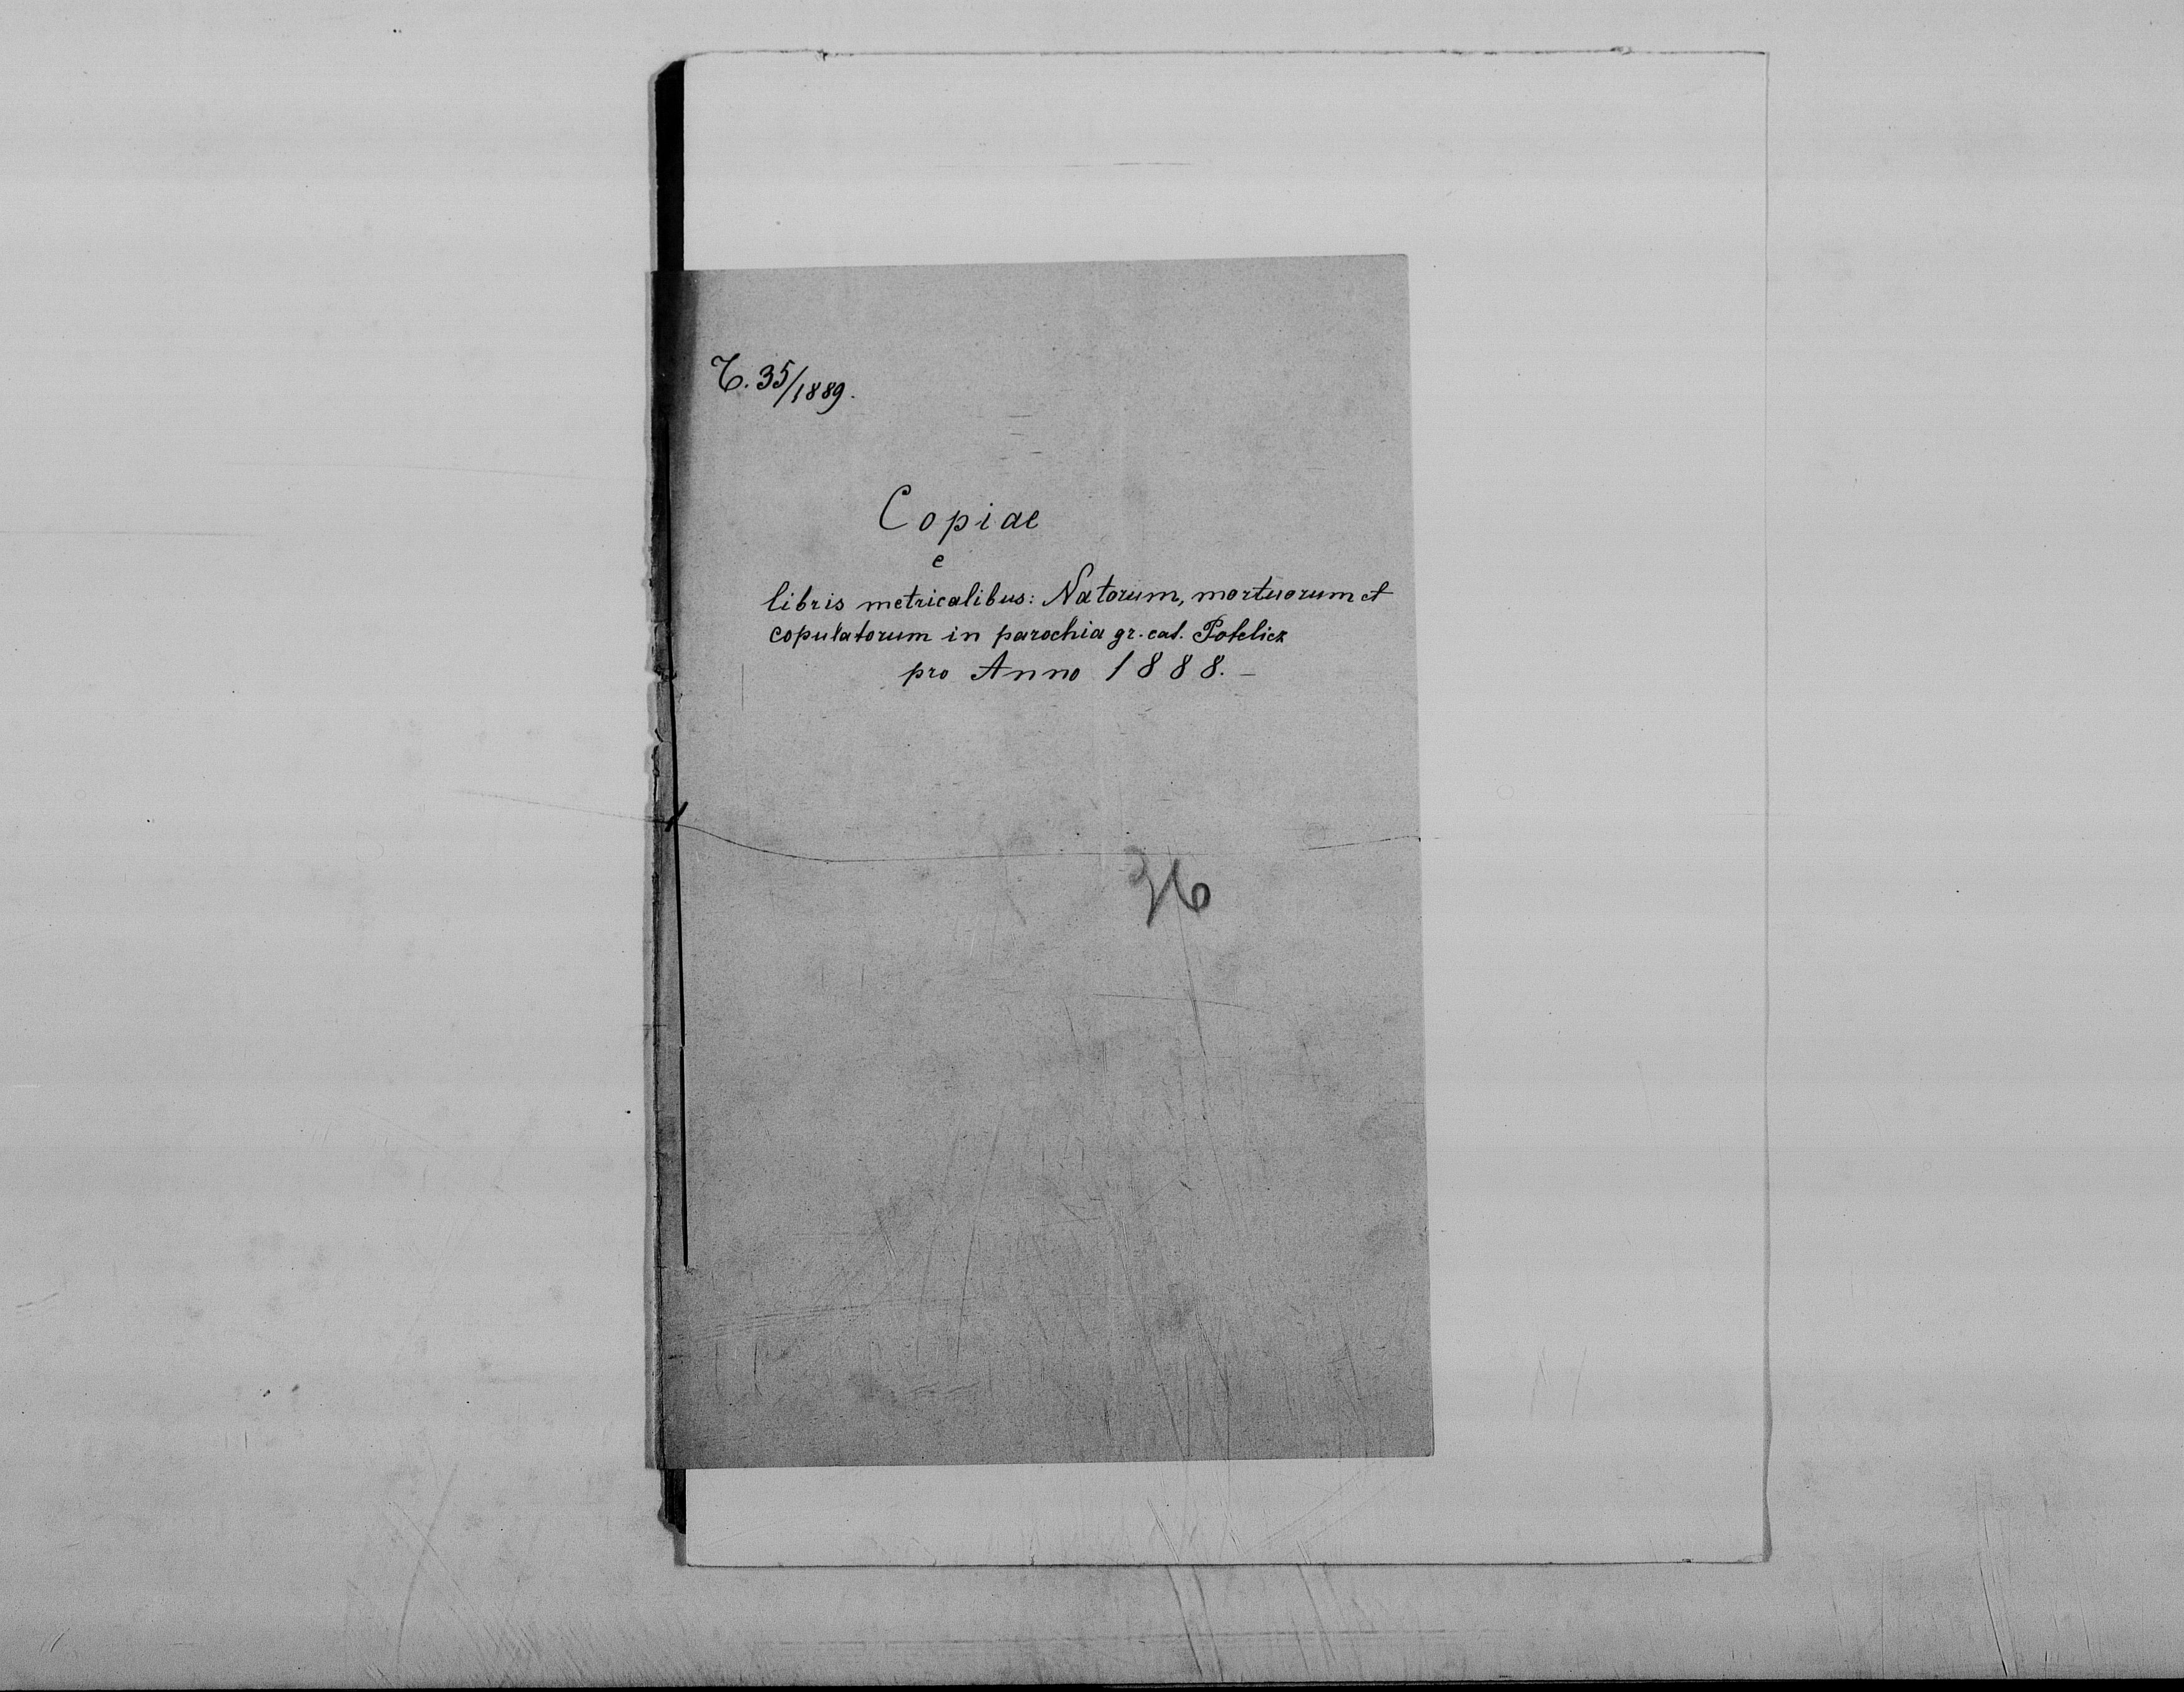 T. 35/1889.
Copiae
e
libris metricalibus: Natorum, mortuorum et
copulatorum in parochia gr. cat. Potelicz
pro Anno 1888. –
36